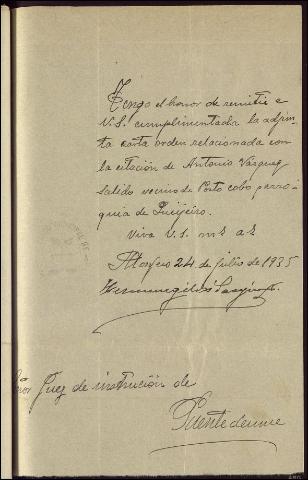 Tengo el honor de remitir a
V.S. cumplimentada la adjun-
ta carta orden relacionada con
la citación de Antonio Vazquez
Salido vecino de Porto cobo parro-
quia de
Viva V.S. ms as
24 de julio de 1935
Hermenegildo
Juez de instrución de
Puentedeume